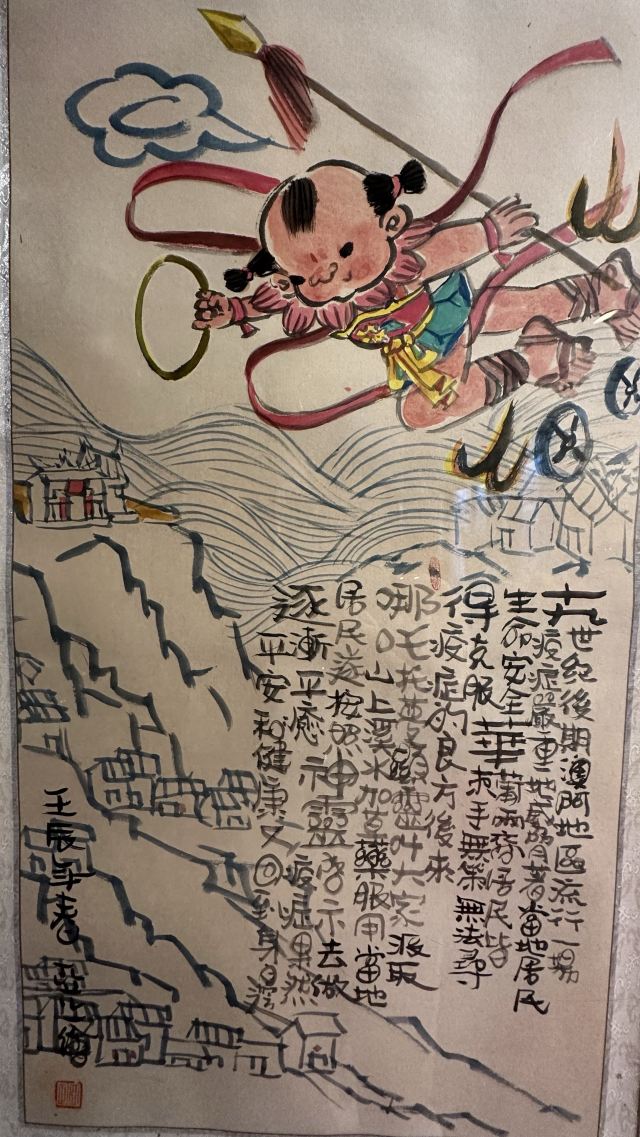 十九世紀後期澳門地區流行一場
疫症嚴重地威脅著當地居民
生命安全華葡兩居民皆
束手無策無法尋
得克服
疫症的良方後來
哪吒托夢顯靈叫大家汲取
山上溪水加草藥服用當地
居民遂按照神靈啓示去做
疫症果然
逐漸平癒
平安和健康又回到身旁
壬辰年春